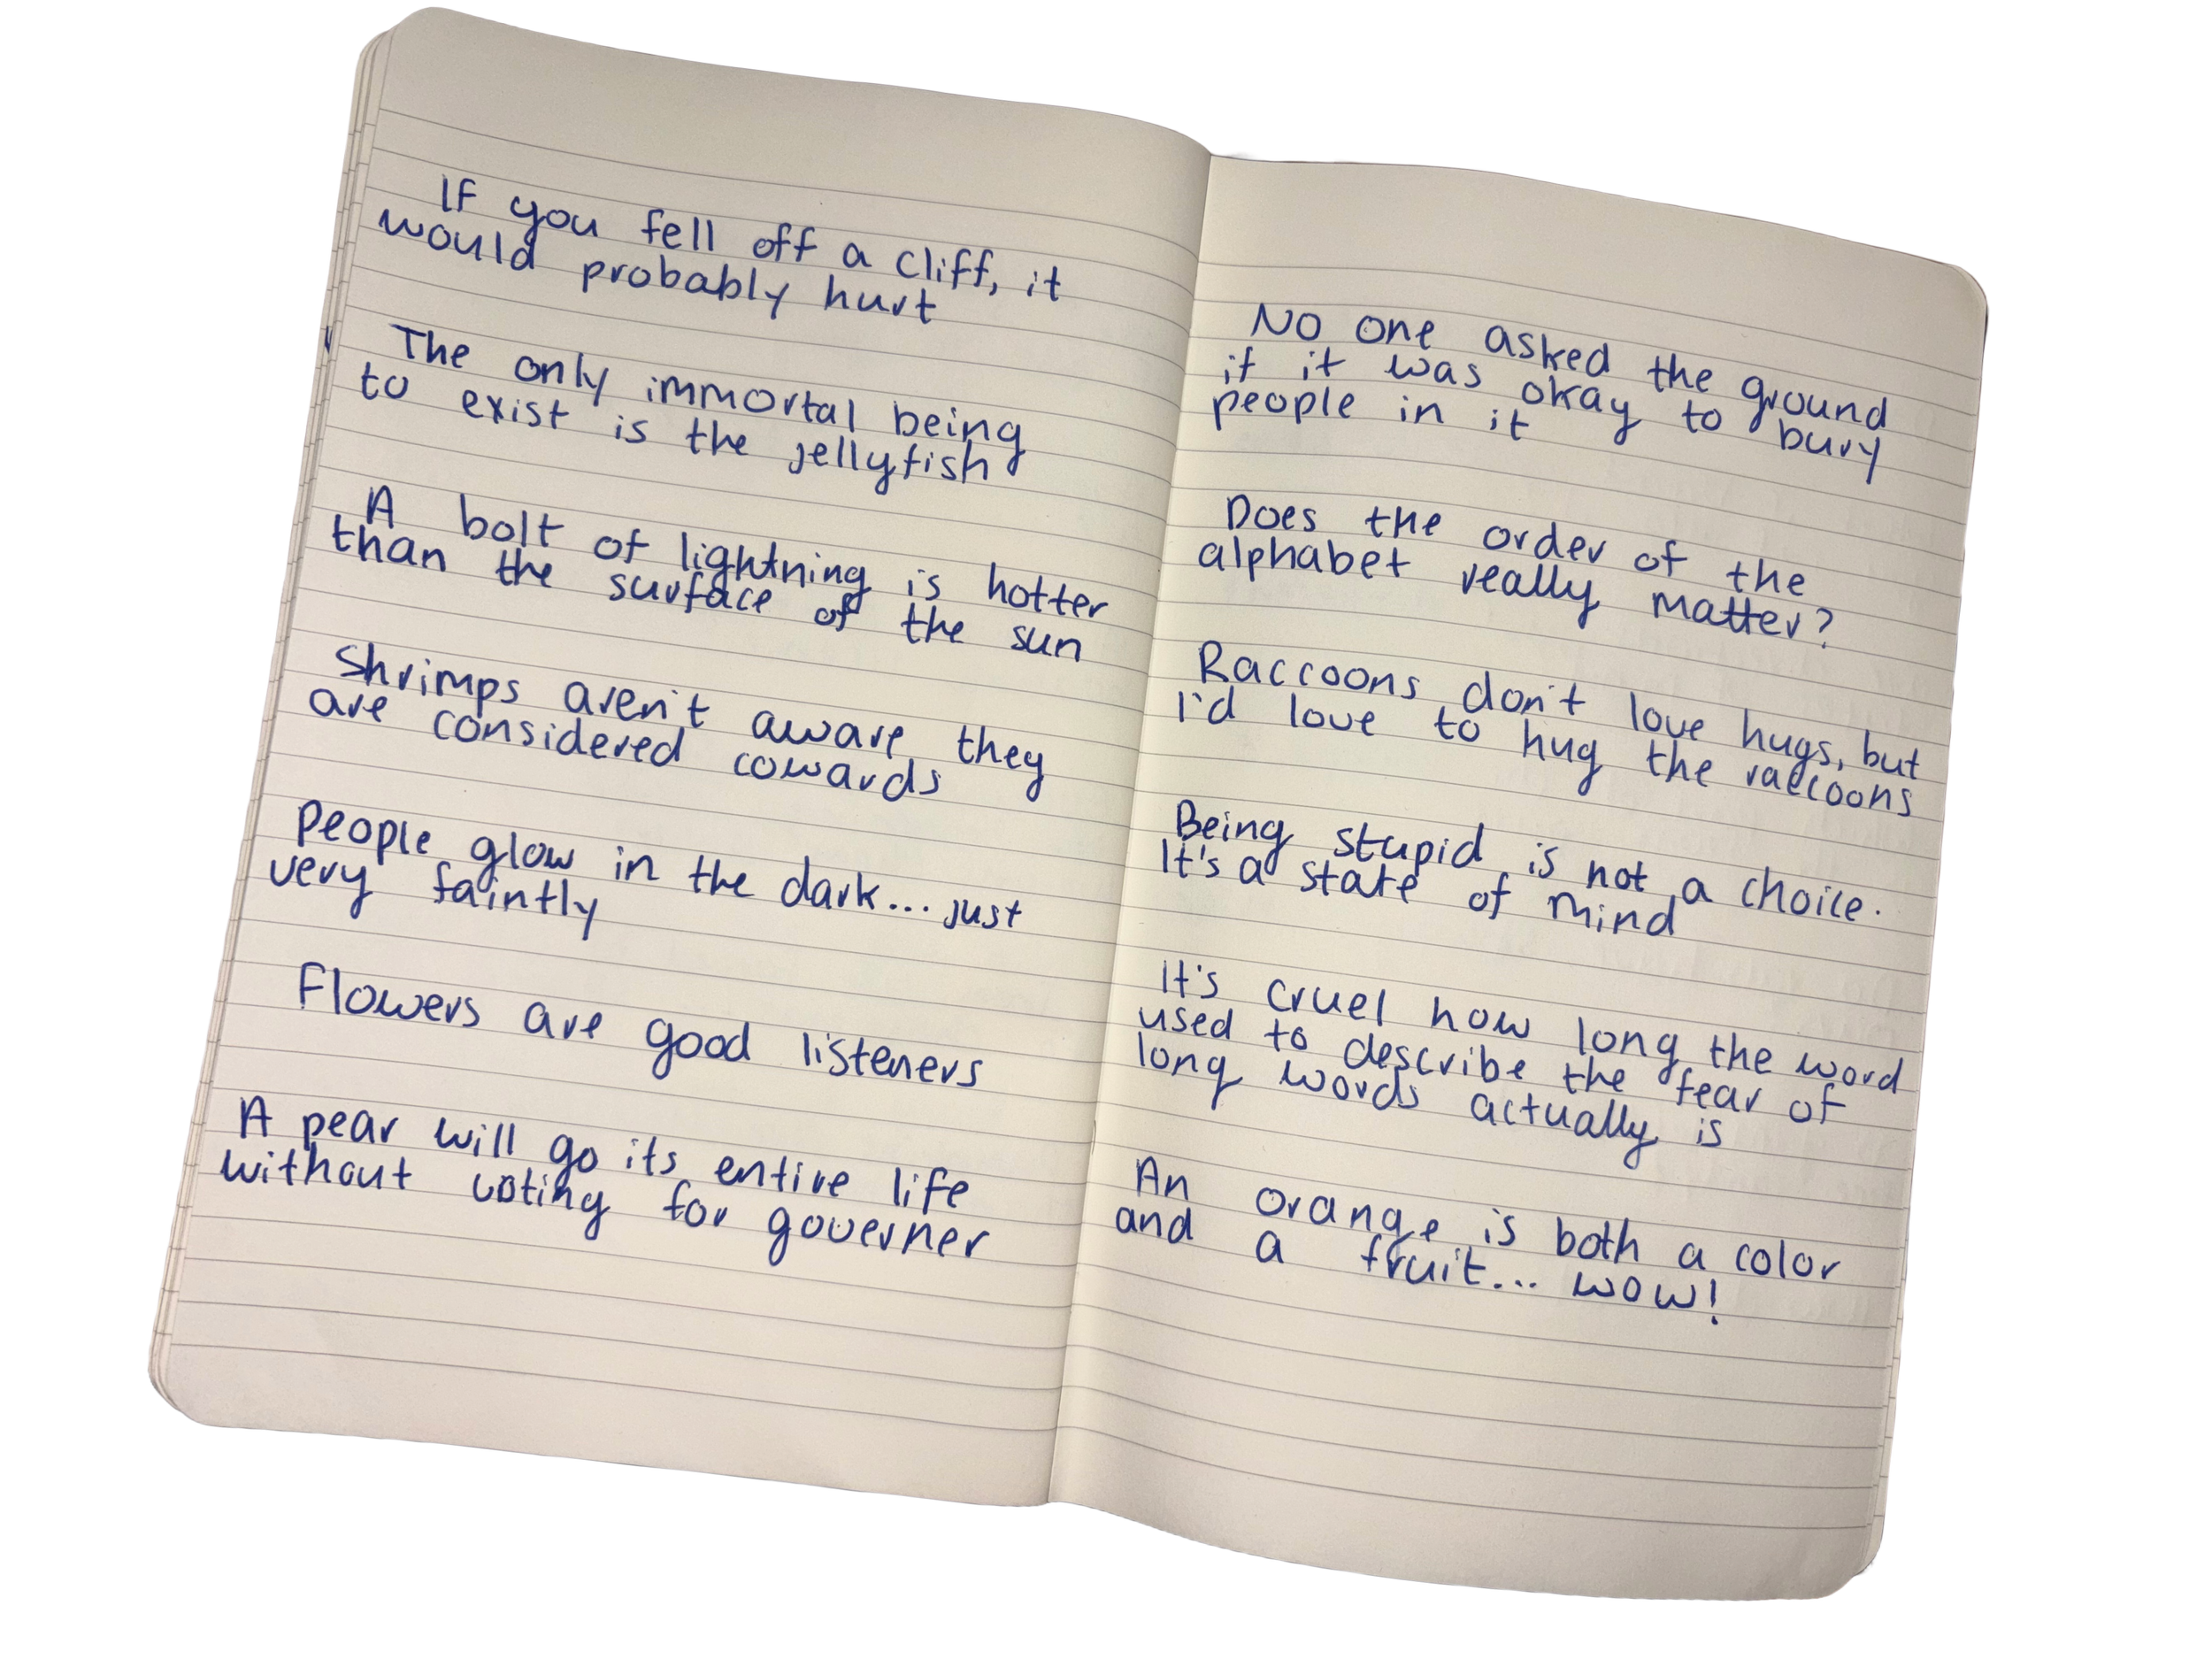 If you fell off a cliff, it
would probably hurt
The only immortal being
to exist is the jellyfish
A bolt of lightning is hotter
than the surface of the sun
Shrimps aren't aware they
are considered cowards
People glow in the dark... just
very faintly
Flowers are good listeners
A pear will go its entire life
without voting for governer
No one asked the ground
if it was okay to bury
people in it
Does the order of the
alphabet really matter?
Raccoons don't love hugs, but
I'd love to hug the raccoons
Being stupid is not a choice.
It's a state of mind
It's cruel how long the word
used to describe the fear of
long words actually is
An orange is both a color
and a fruit... wow!